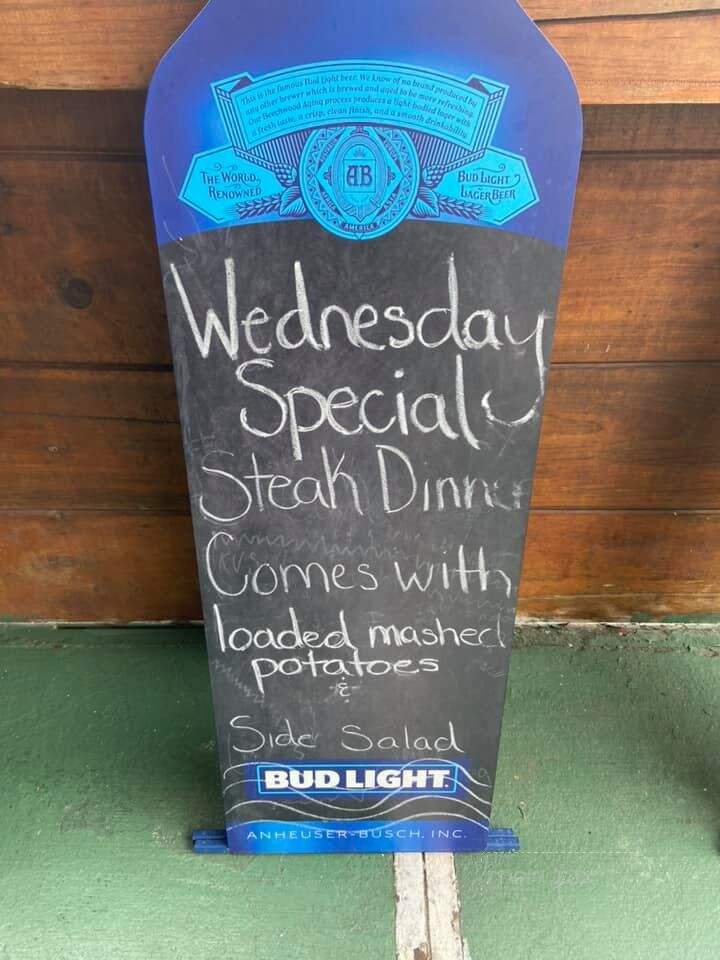 This is the famous Bud Light beer. We know of no brand produced by
any other brewer which is brewed and aged to be more refreshing.
Our Beechwood Aging process produces a light-bodied lager with
a fresh taste, a crisp, clean finish, and a smooth drinkability.
THE WORLD
RENOWNED
AB
BUD LIGHT
LAGER BEER
AMERICA
Wednesday
Special
Steak Dinner
Comes with
loaded mashed
potatoes
&
Side Salad
BUD LIGHT.
ANHEUSER-BUSCH, INC.